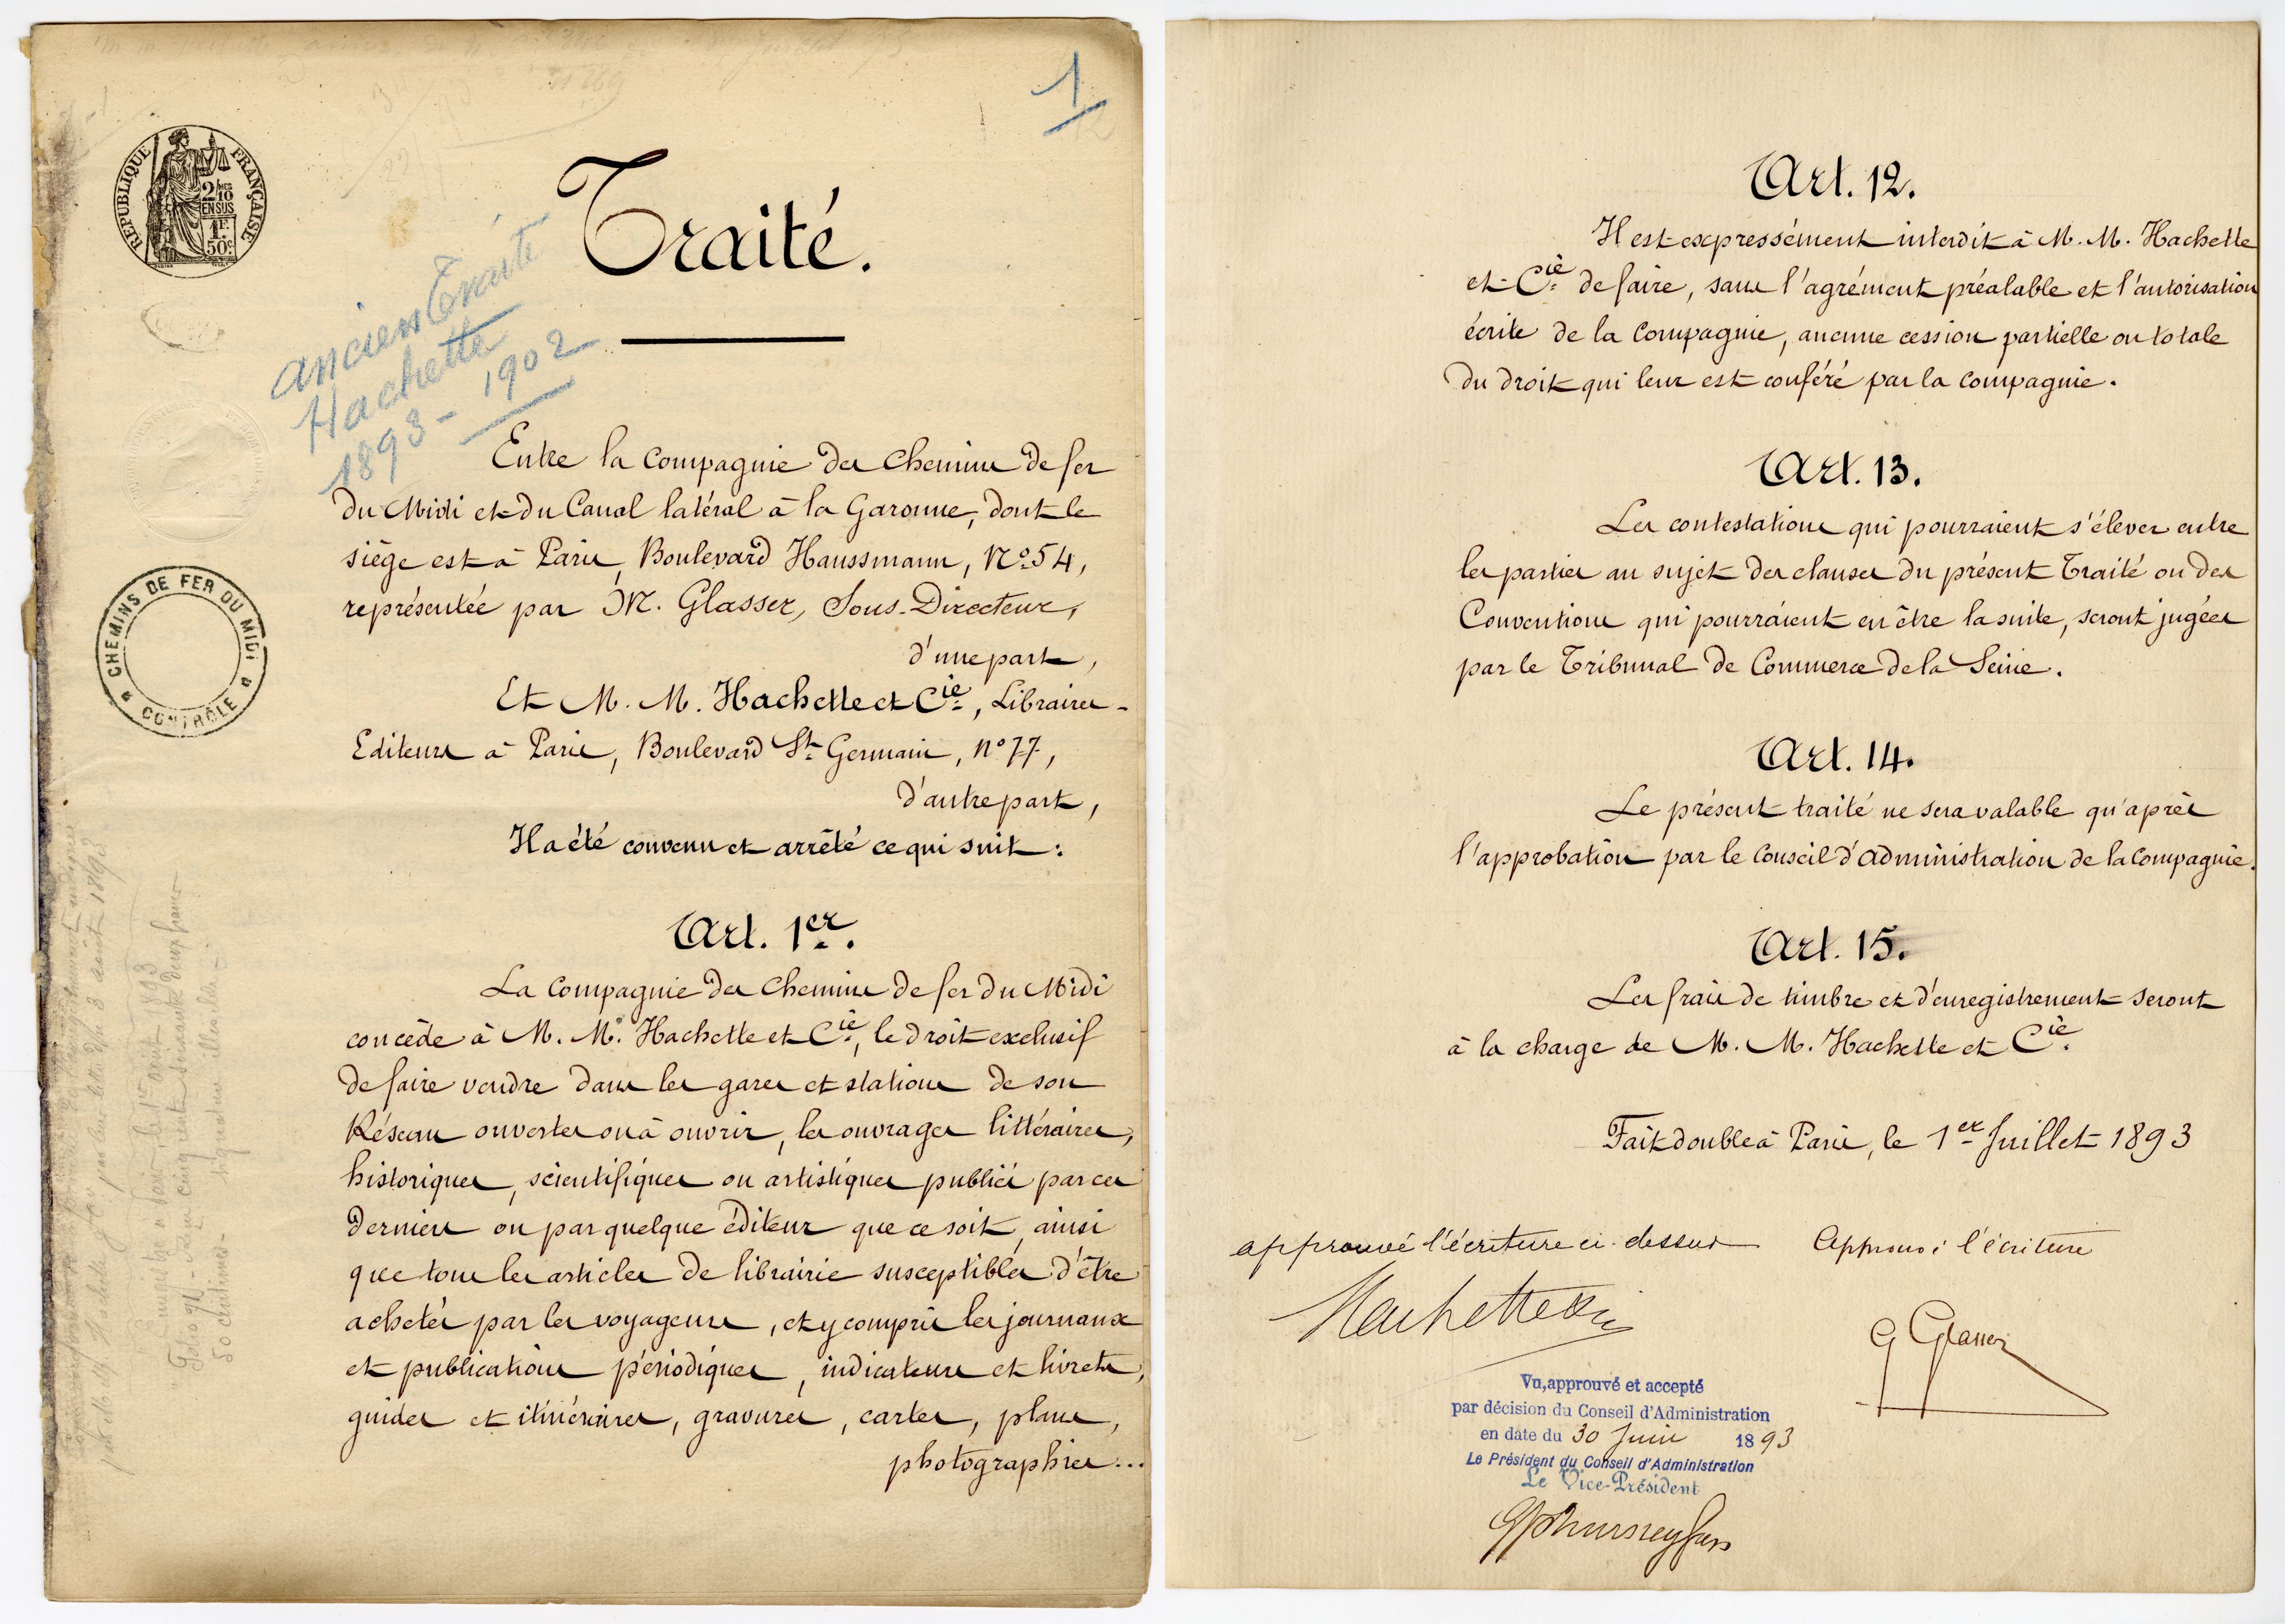 1
RÉPUBLIQUE FRANÇAISE
2/10
EN SUS
1F
50c
Traité.
ancien Traité
Hachette
1893-1902
Entre la Compagnie des Chemins de fer
du Midi et du Canal latéral à la Garonne, dont le
siège est à Paris, Boulevard Haussmann, No 54,
représentée par M. Glasser, Sous-Directeur,
d'une part,
CHEMINS DE FER DU MIDI
CONTRÔLE
Et M. M. Hachette et Cie, Libraires-
Editeurs à Paris, Boulevard St Germain, no 77,
d'autre part,
Il a été convenu et arrêté ce qui suit:
Art. 1er.
La Compagnie des Chemins de fer du Midi
concède à M. M. Hachette et Cie, le droit exclusif
de faire vendre dans les gares et stations de son
Réseau ouvertes ou à ouvrir, les ouvrages littéraires,
historiques, scientifiques ou artistiques publiés par ces
derniers ou par quelque éditeur que ce soit, ainsi
que tous les articles de librairie susceptibles d'être
achetés par les voyageurs, et y compris les journaux
et publications périodiques, indicateurs et livrets,
guides et itinéraires, gravures, cartes, plans,
photographies...
Art. 12.
Il est expressément interdit à M. M. Hachette
et Cie de faire, sans l'agrément préalable et l'autorisation
écrite de la Compagnie, aucune cession partielle ou totale
du droit qui leur est conféré par la Compagnie.
Art. 13.
Les contestations qui pourraient s'élever entre
les parties au sujet des clauses du présent Traité ou des
Conventions qui pourraient en être la suite, seront jugées
par le Tribunal de Commerce de la Seine.
Art. 14.
Le présent traité ne sera valable qu'après
l'approbation par le Conseil d'Administration de la Compagnie.
Art. 15.
Les frais de timbre et d'enregistrement seront
à la charge de M. M. Hachette et Cie.
Fait double à Paris, le 1er Juillet 1893
approuvé l'écriture ci-dessus
Approuvé l'écriture
Hachette & Cie
G Glasser
Vu, approuvé et accepté
par décision du Conseil d'Administration
en date du 30 Juin 1893
Le Président du Conseil d'Administration
Le Vice-Président